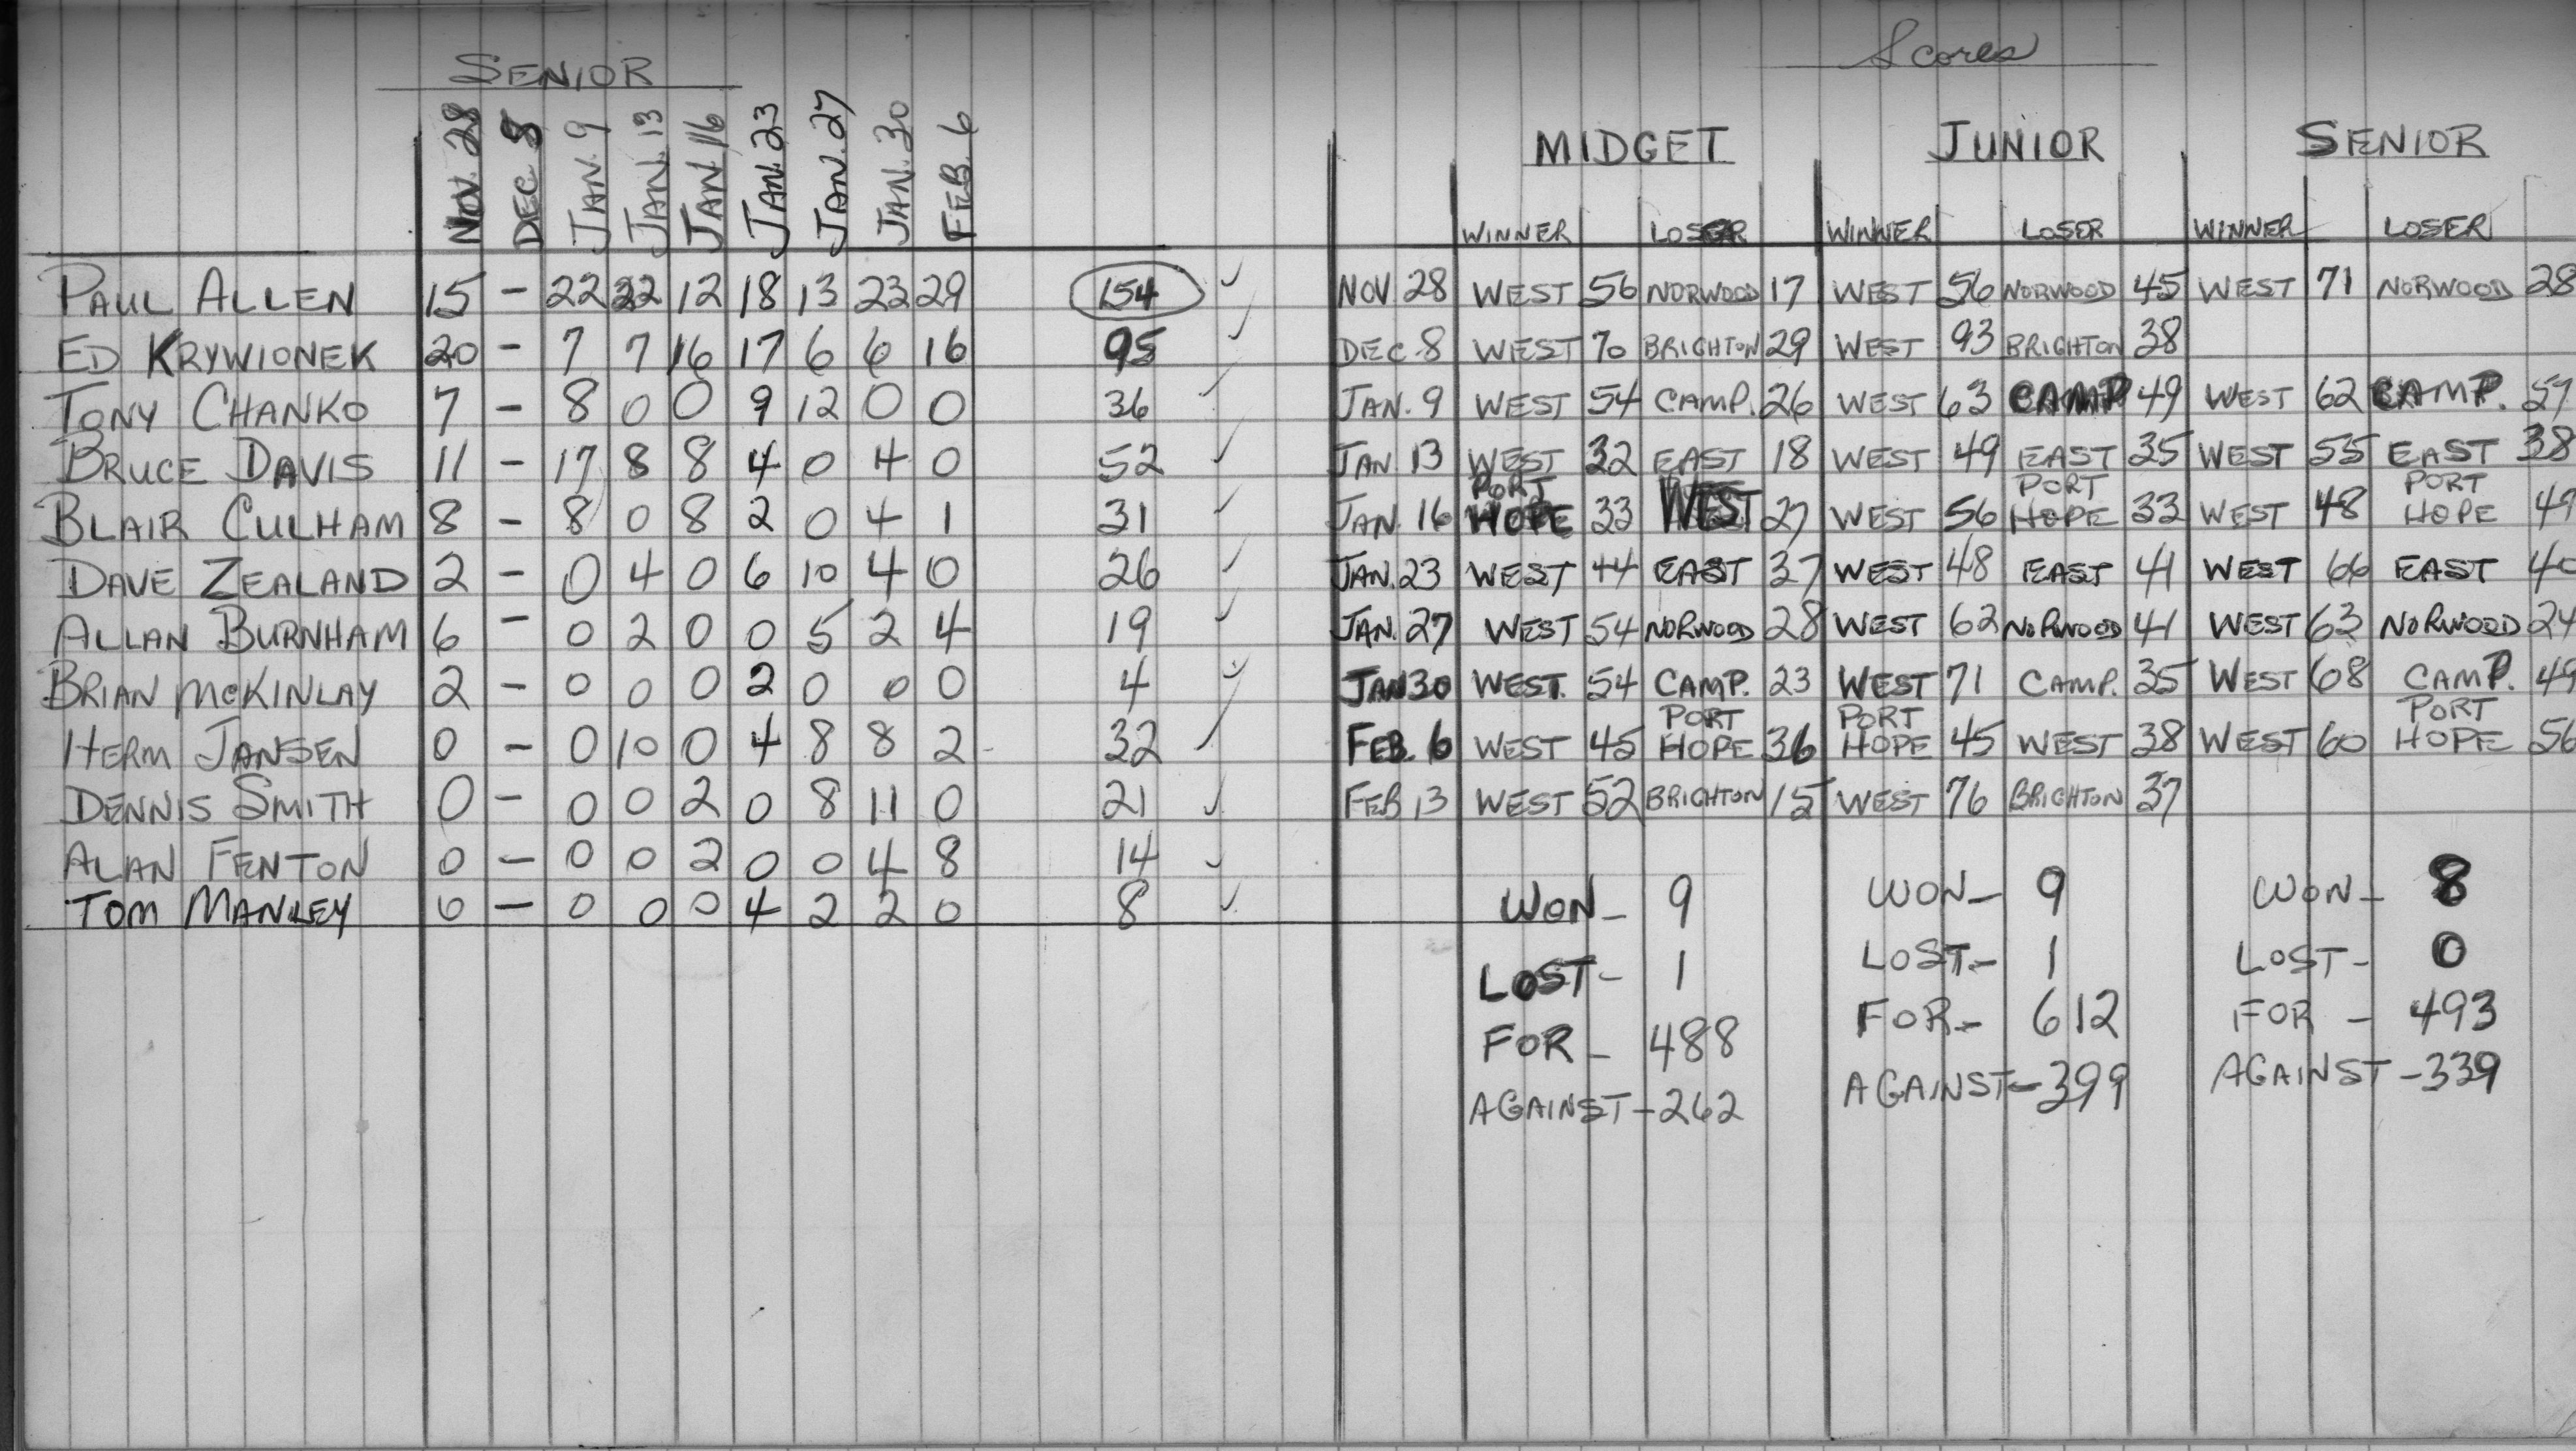 SENIOR
NOV. 28 DEC 8 JAN. 9 JAN. 13 JAN. 16 JAN. 23 JAN. 27 JAN. 30 FEB. 6
PAUL ALLEN 15 - 22 22 12 18 13 23 29 154 ✓
ED KRYWIONEK 20 - 7 7 16 17 6 6 16 95 ✓
TONY CHANKO 7 - 8 0 0 9 12 0 0 36 ✓
BRUCE DAVIS 11 - 17 8 8 4 0 4 0 52 ✓
BLAIR CULHAM 8 - 8 0 8 2 0 4 1 31 ✓
DAVE ZEALAND 2 - 0 4 0 6 10 4 0 26 ✓
ALLAN BURNHAM 6 - 0 2 0 0 5 2 4 19 ✓
BRIAN McKINLAY 2 - 0 0 0 2 0 0 0 4 ✓
HERM JANSEN 0 - 0 10 0 4 8 8 2 32 ✓
DENNIS SMITH 0 - 0 0 2 0 8 11 0 21 ✓
ALAN FENTON 0 - 0 0 2 0 0 4 8 14 ✓
TOM MANLEY 0 - 0 0 0 4 2 2 0 8 ✓
Scores
MIDGET JUNIOR SENIOR
WINNER LOSER WINNER LOSER WINNER LOSER
NOV 28 WEST 56 NORWOOD 17 WEST 56 NORWOOD 45 WEST 71 NORWOOD 28
DEC. 8 WEST 70 BRIGHTON 29 WEST 93 BRIGHTON 38
JAN. 9 WEST 54 CAMP. 26 WEST 63 CAMP 49 WEST 62 CAMP.
JAN 13 WEST 32 EAST 18 WEST 49 EAST 35 WEST 55 EAST 38
JAN. 16 PORT HOPE 33 WEST 27 WEST 56 PORT HOPE 33 WEST 48 PORT HOPE
JAN. 23 WEST 44 EAST 37 WEST 48 EAST 41 WEST 66 EAST 40
JAN. 27 WEST 54 NORWOOD 28 WEST 62 NORWOOD 41 WEST 63 NORWOOD 24
JAN 30 WEST. 54 CAMP. 23 WEST 71 CAMP. 35 WEST 68 CAMP. 49
FEB. 6 WEST 45 PORT HOPE 36 PORT HOPE 45 WEST 38 WEST 60 PORT HOPE 56
FEB 13 WEST 52 BRIGHTON 15 WEST 76 BRIGHTON 37
WON - 9 WON - 9 WON - 8
LOST - 1 LOST - 1 LOST - 0
FOR - 488 FOR - 612 FOR - 493
AGAINST - 262 AGAINST - 399 AGAINST - 339